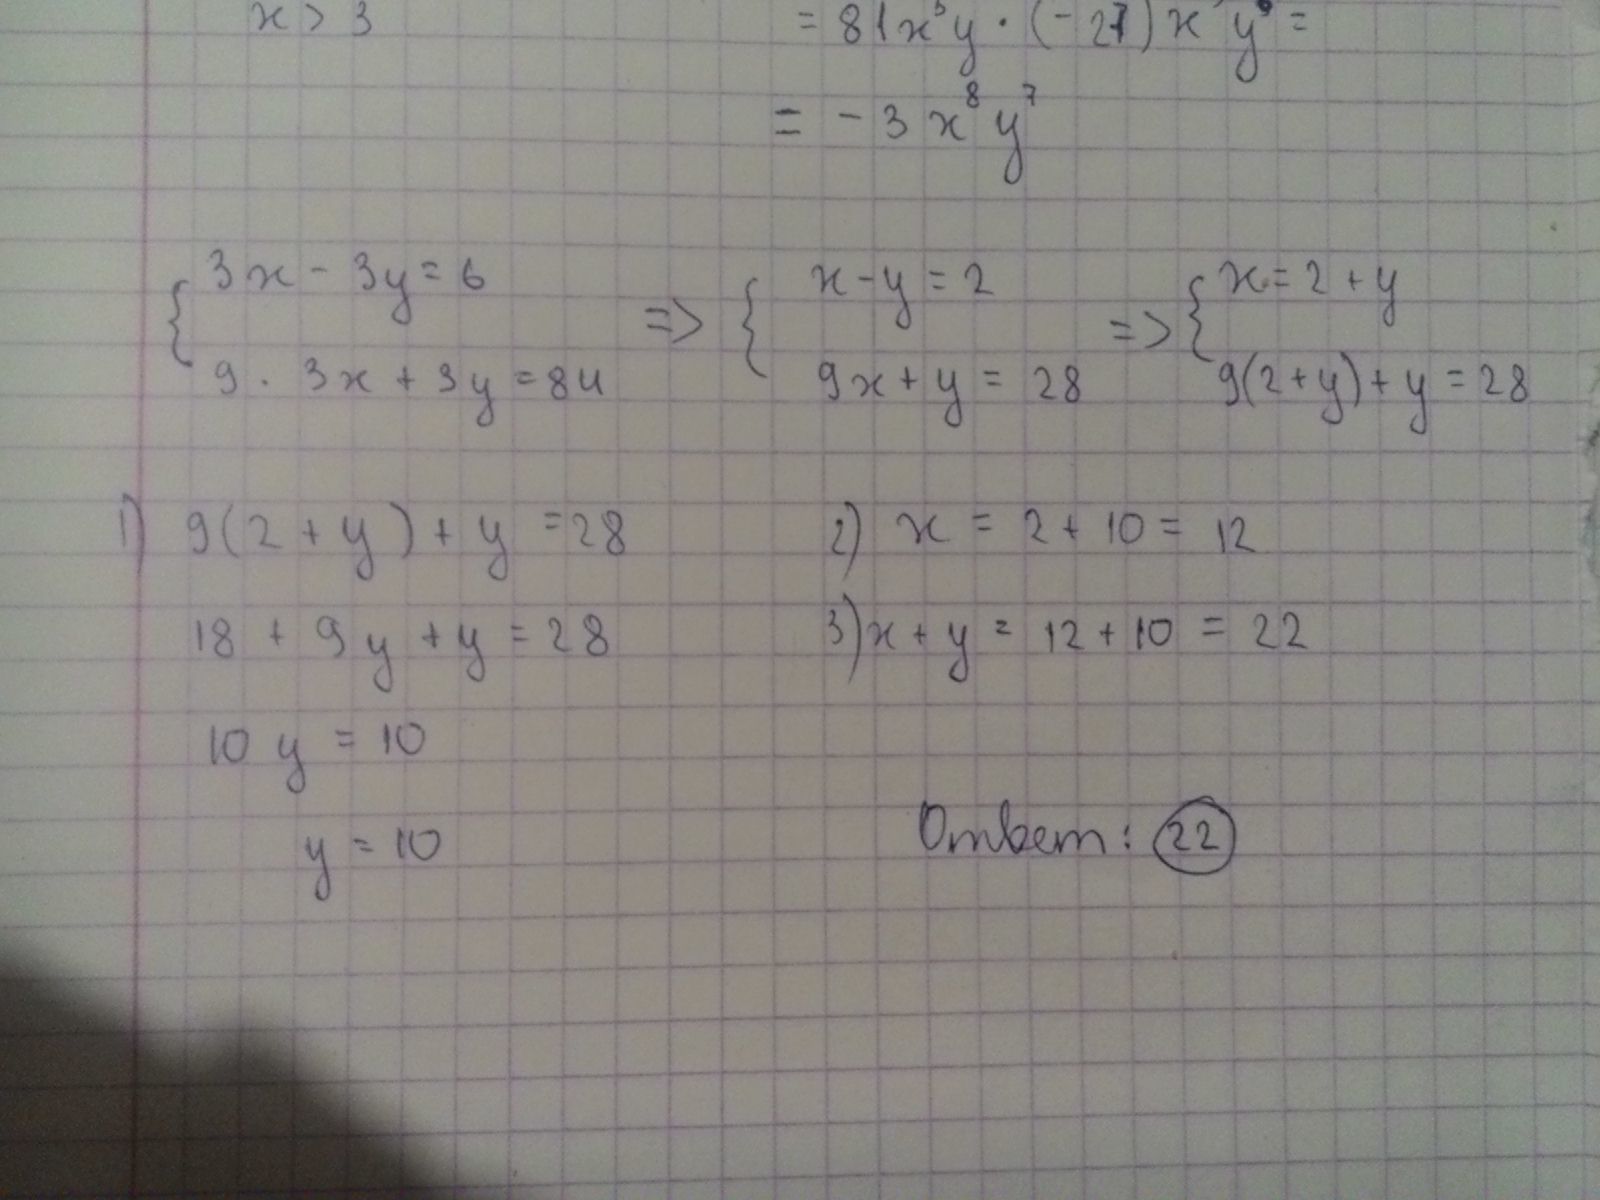 x > 3
= 81x³y · (-27)x y =
= -3x⁸y⁷
{ 3x - 3y = 6
9 · 3x + 3y = 84
=> { x - y = 2
9x + y = 28
=> { x = 2 + y
9(2+y) + y = 28
1) 9(2 + y) + y = 28
18 + 9y + y = 28
10y = 10
y = 10
2) x = 2 + 10 = 12
3) x + y = 12 + 10 = 22
Ответ: 22